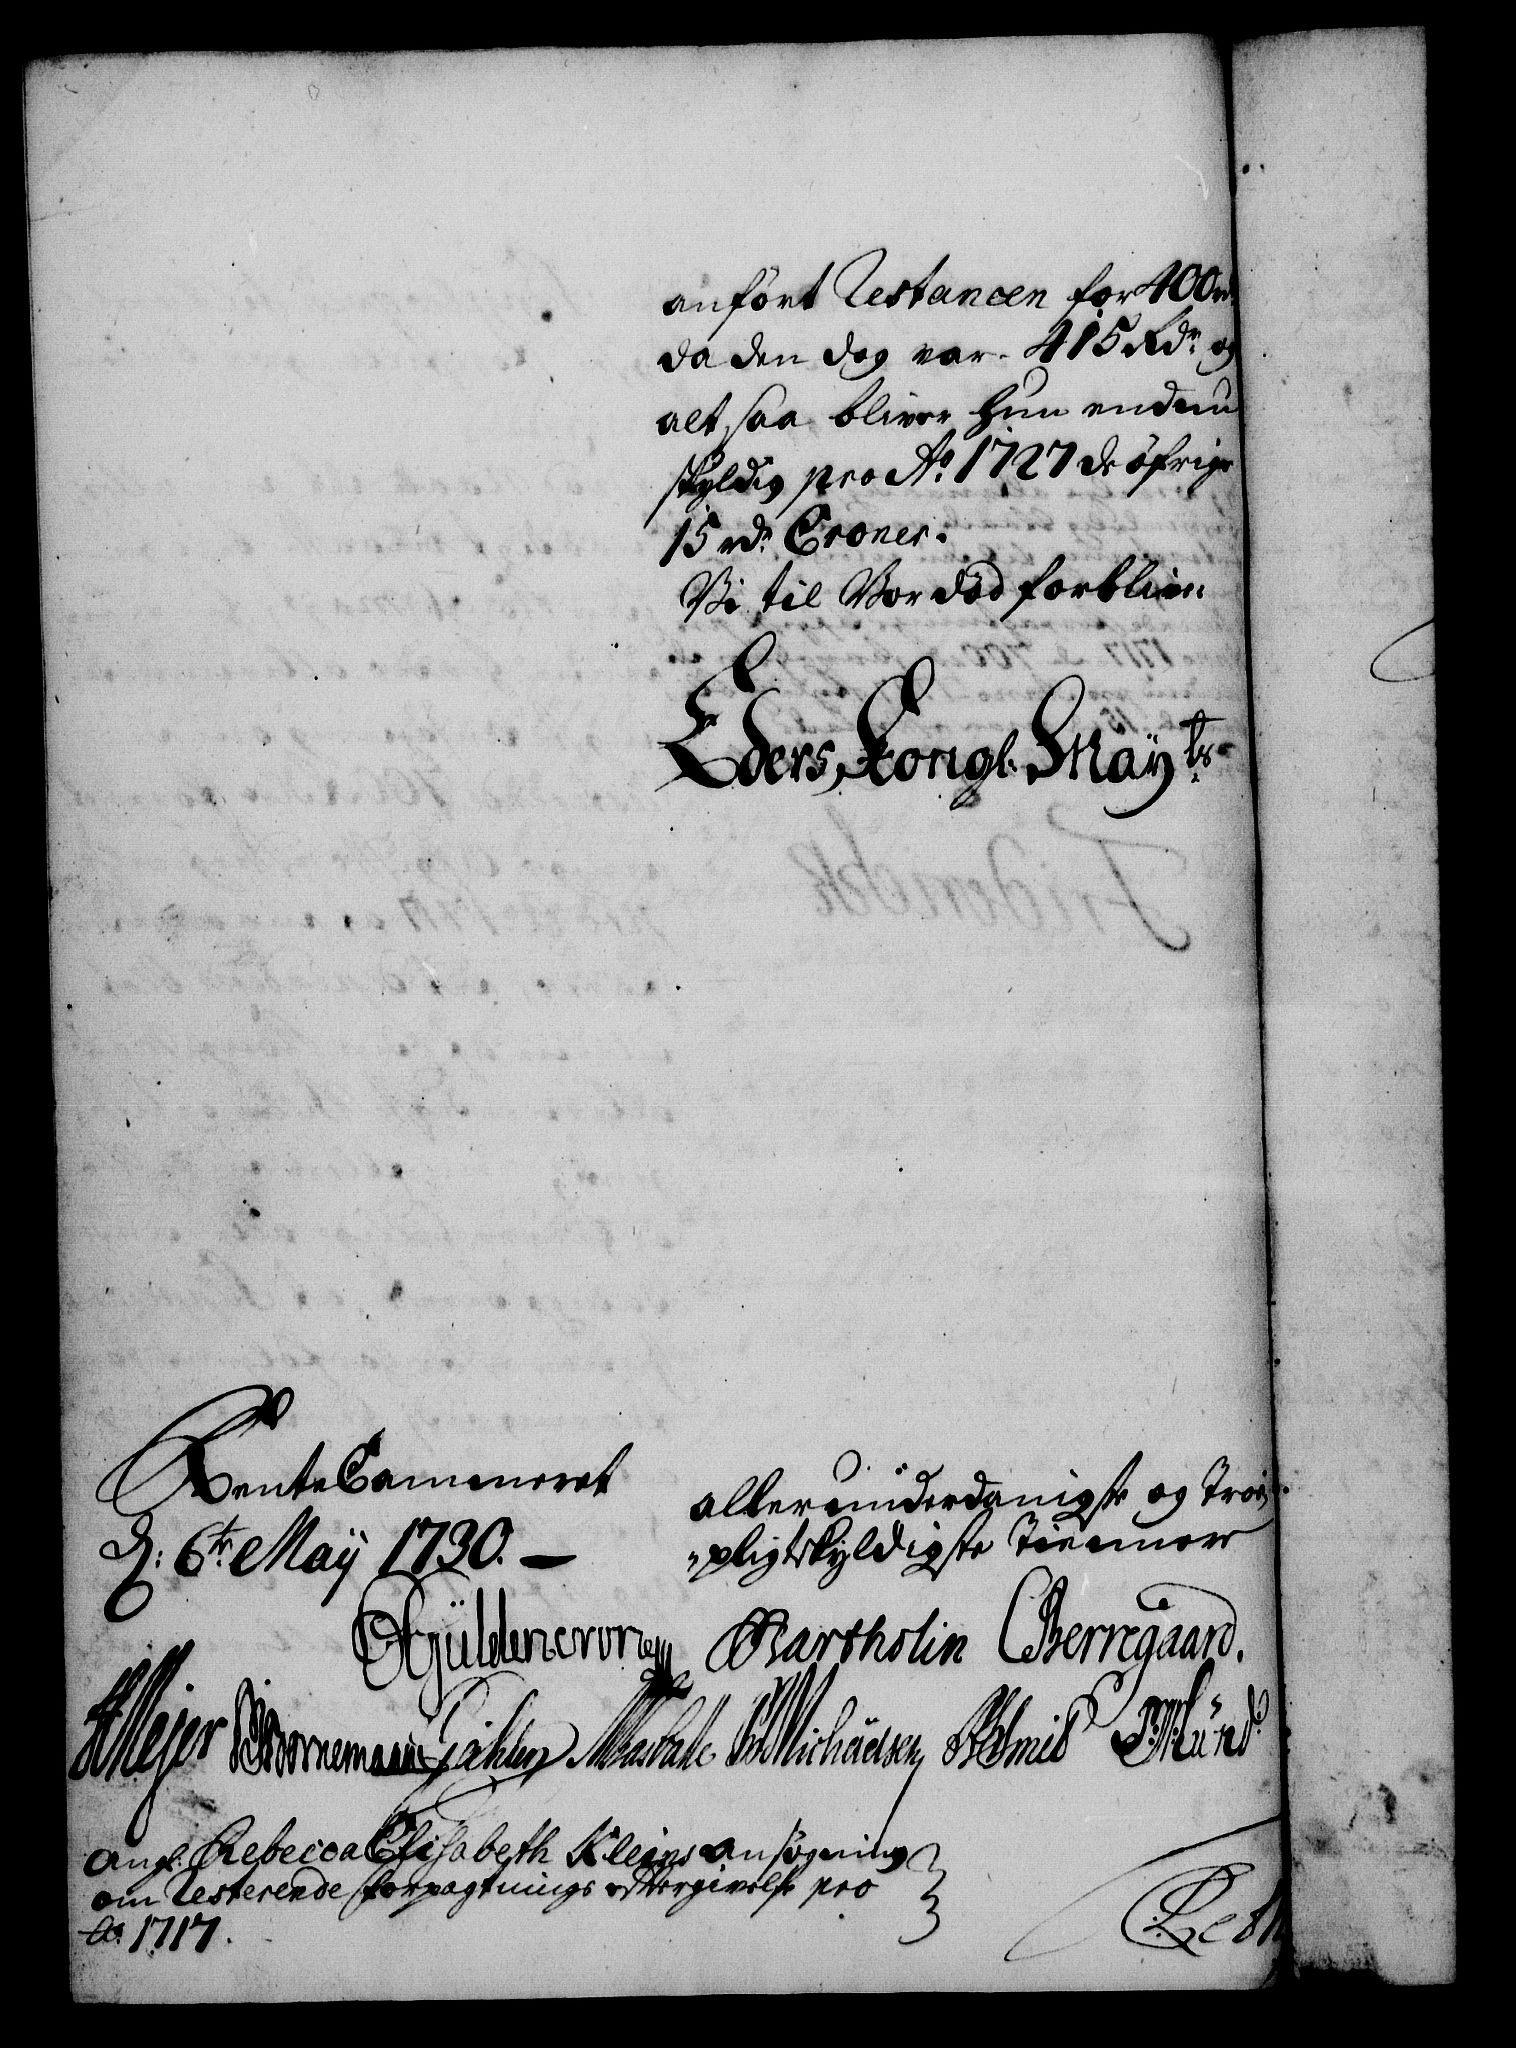 anfört Restancen for 400 rd
da den dog var 415 Rdr og
alt saa bliver Hun endnu
skyldig pro Ao 1727 de öfrige
15 rdr Croner.
Vi til Vor död forblive
Eders Kongl: Mayts
RenteCammeret
d: 6te Maÿ 1730.
allerunderdanigste og Troe
pligtskyldigste Tienner
Güldencrone Bartholin CBerregaard.
HMejer Bornemann Gählen PMichaelsen
ang: Rebecca Elisabeth Kleins ansögning
om resterende forpagtnings eftergivelse pro
Ao 1717.